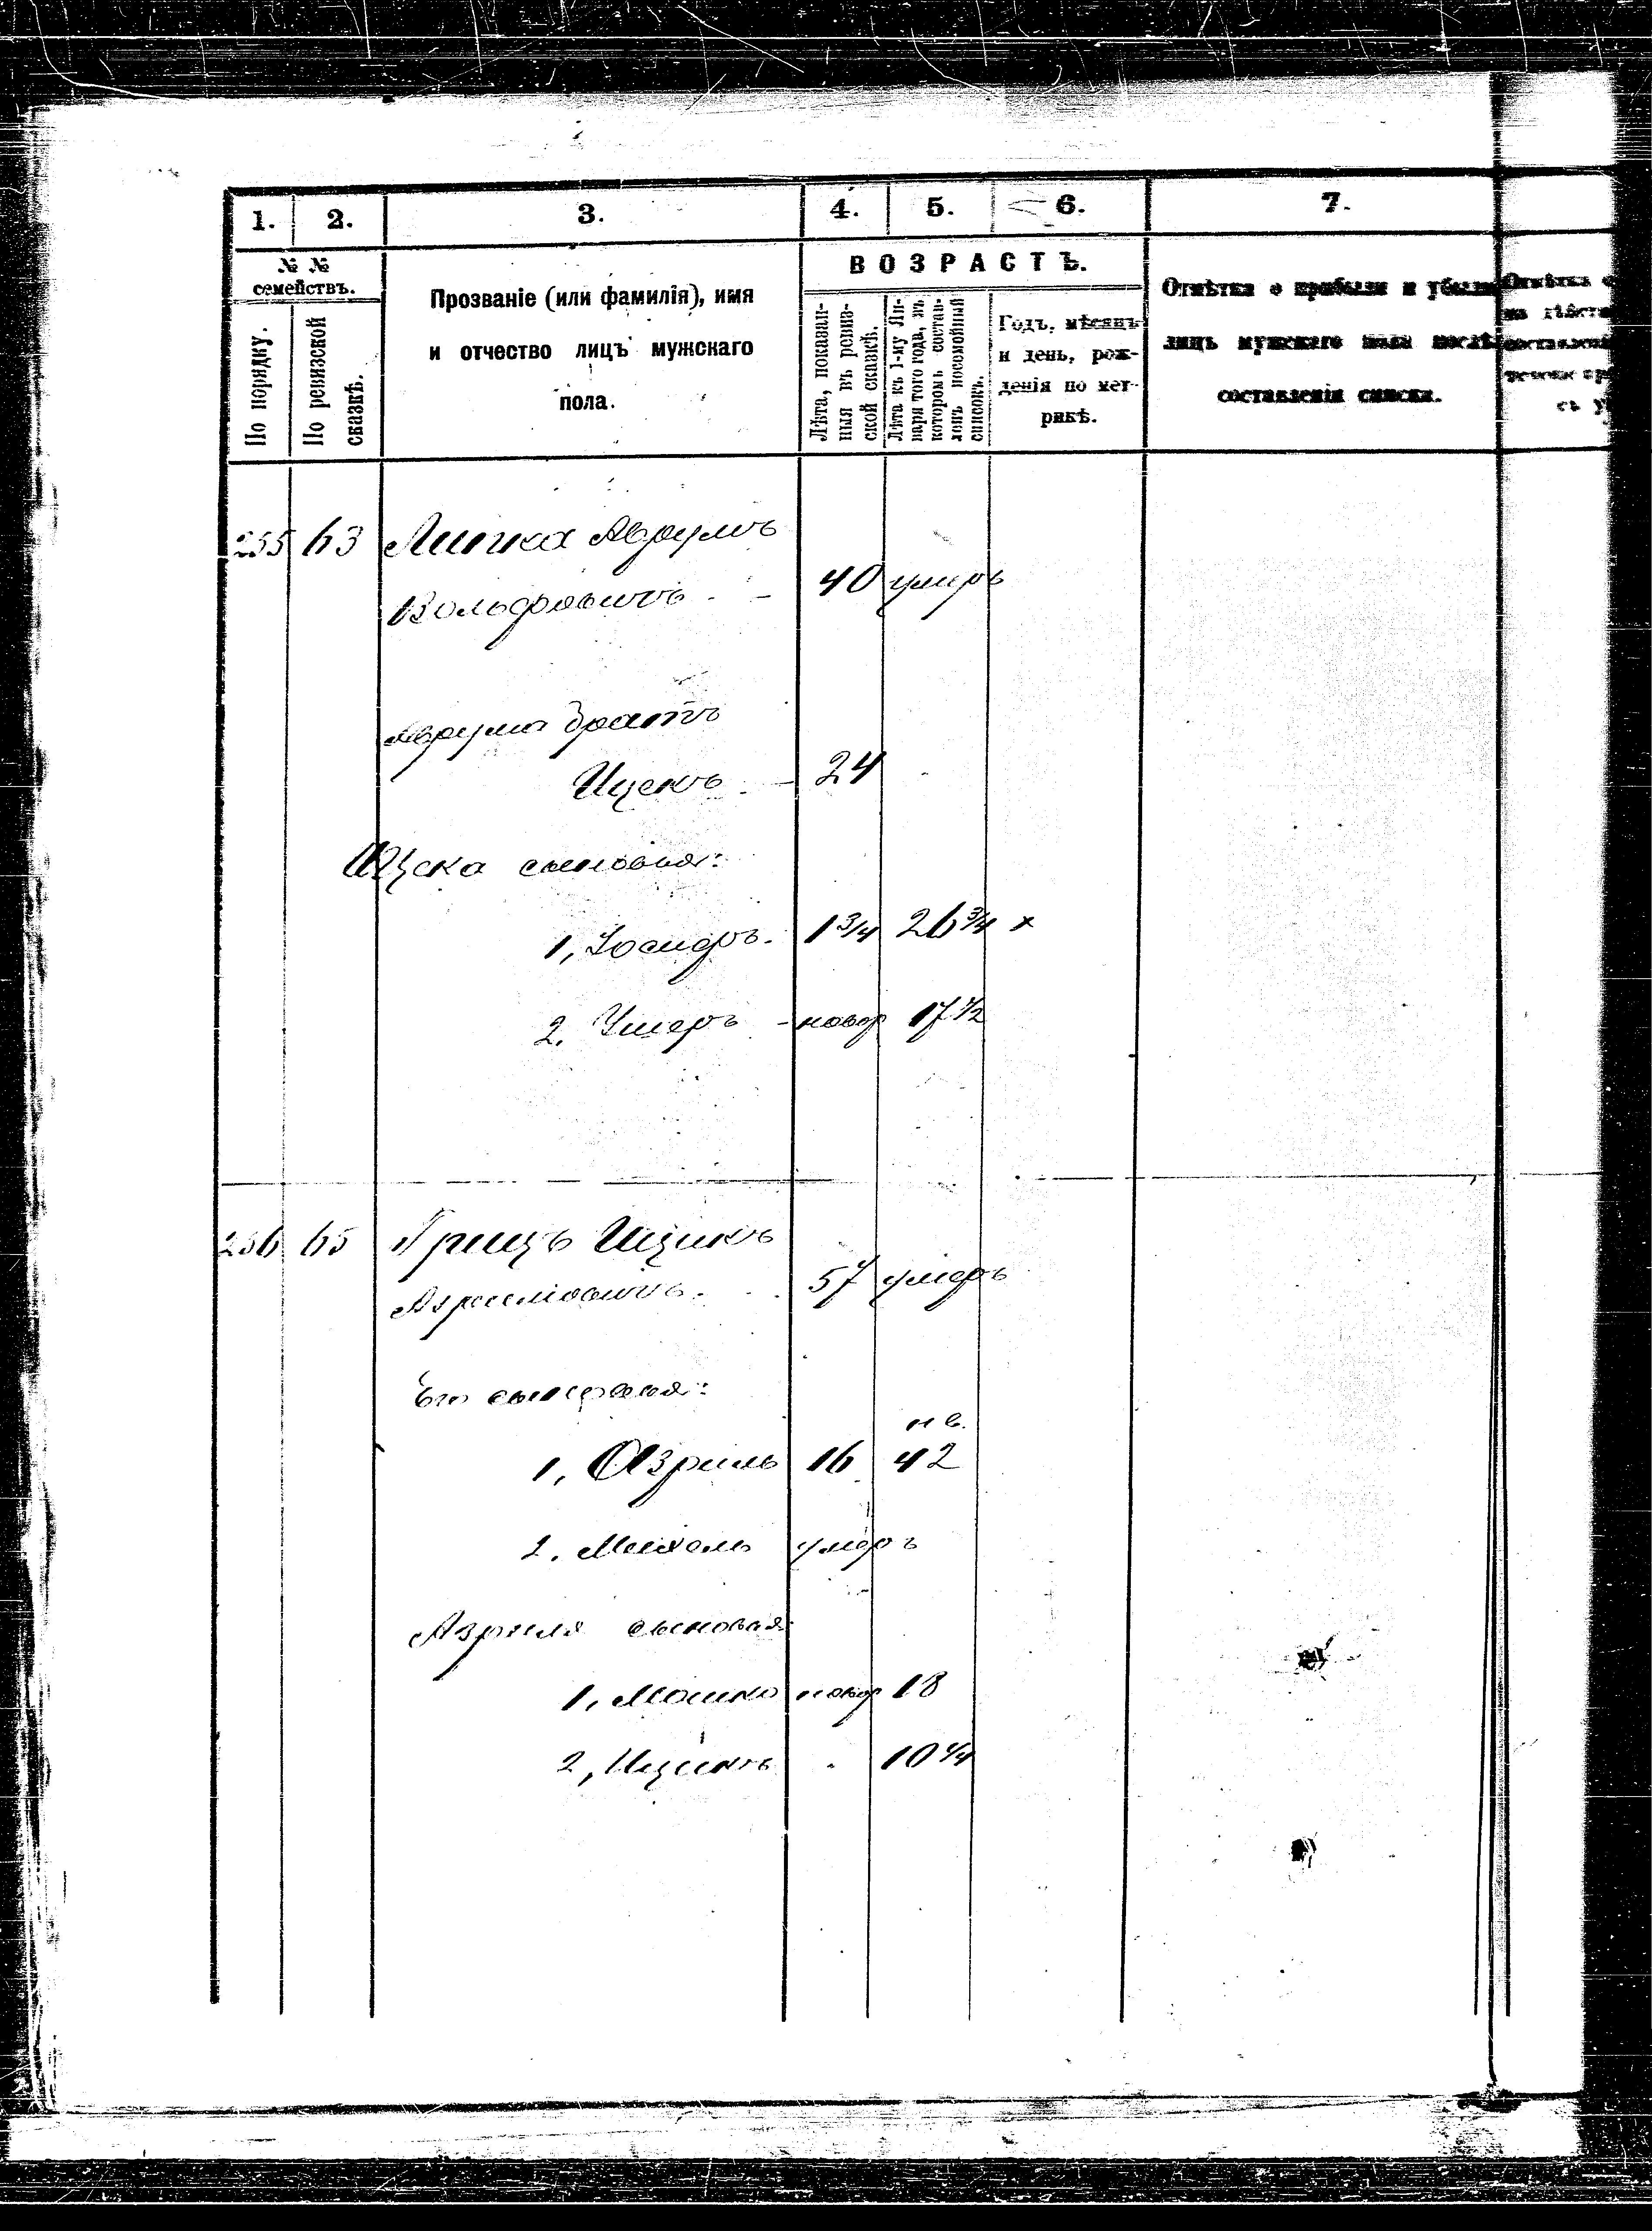 1. 2. 3. 4. 5. 6. 7.
№ №
семействъ.
По порядку.
По ревизской
сказкѣ.
Прозваніе (или фамилія), имя
и отчество лицъ мужскаго
пола.
ВОЗРАСТЪ.
Лѣта, показан-
ныя въ ревиз-
ской сказкѣ.
Лѣта къ 1-му Ян-
варя того года, въ
которомъ состав-
ленъ посемейный
списокъ.
Годъ, мѣсяцъ
и день, рож-
денія по мет-
рикѣ.
Отмѣтка о прибыли и убыли
лицъ мужскаго пола послѣ
составленія списка.
255 63 Липка Аврумъ
Вольфовичъ - - 40 умеръ
Аврума братъ
Ицекъ - 24
Ицка сыновья:
1, Іосифъ. 1 3/4 26 3/4 x
2. Ушеръ - новор 17 1/2
256 65 Грицъ Ицикъ
Азрилiовичъ. 57 умеръ
Его сыновья:
н в.
1, Азриль 16 42
2. Михель умеръ
Азриля сыновья:
1, Мошко новор 18
2, Ицикъ . 10 1/4